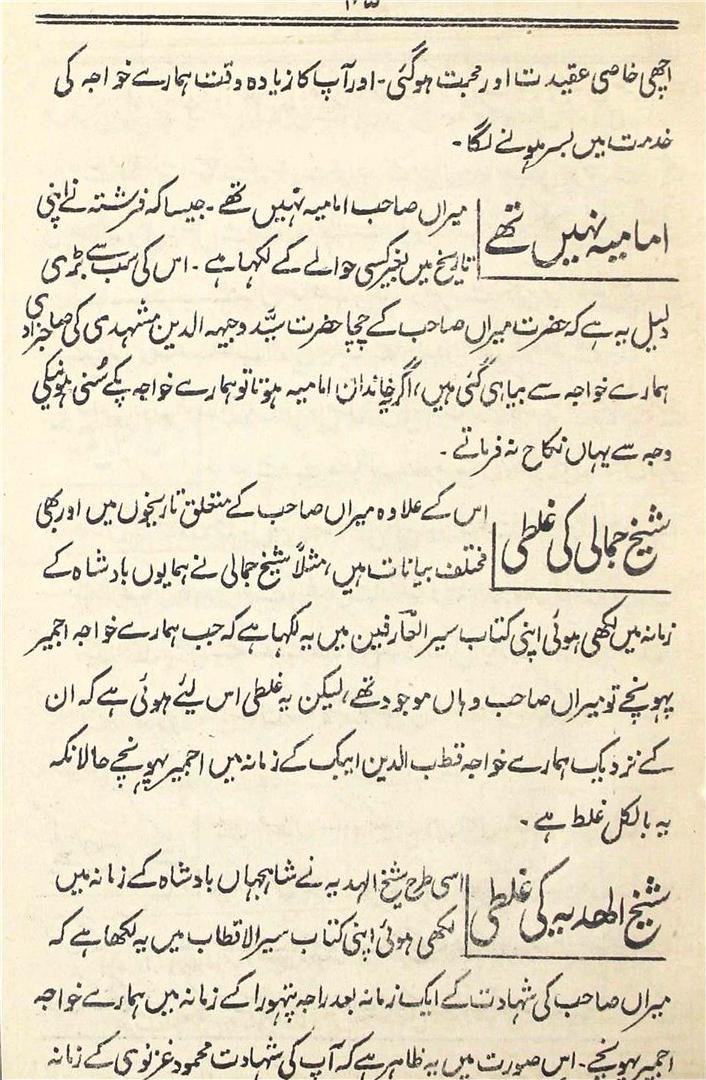 اچھی خاصی عقیدت اور محبت ہوگئی۔ اور آپ کا زیادہ وقت ہمارے خواجہ کی
خدمت میں بسر ہونے لگا۔
امامیہ نہیں تھے
میراں صاحب امامیہ نہیں تھے۔ جیسا کہ فرشتہ نے اپنی
تاریخ میں بغیر کسی حوالے کے لکھا ہے۔ اس کی سب سے بڑی
دلیل یہ ہے کہ حضرت میراں صاحب کے چچا حضرت سیّد وجیہہ الدین مشہدی کی صاحبزادی
ہمارے خواجہ سے بیاہی گئی ہیں، اگر خاندان امامیہ ہوتا تو ہمارے خواجہ پکے سُنی ہونیکی
وجہ سے یہاں نکاح نہ فرماتے۔
شیخ جمالی کی غلطی
اس کے علاوہ میراں صاحب کے متعلق تاریخوں میں اور بھی
مختلف بیانات ہیں، مثلاً شیخ جمالی نے ہمایوں بادشاہ کے
زمانہ میں لکھی ہوئی اپنی کتاب سیر العارفین میں یہ لکھا ہے کہ جب ہمارے خواجہ اجمیر
پہونچے تو میراں صاحب وہاں موجود تھے، لیکن یہ غلطی اس لیئے ہوئی ہے کہ ان
کے نزدیک ہمارے خواجہ قطب الدین ایبک کے زمانہ میں اجمیر پہونچے حالانکہ
یہ بالکل غلط ہے۔
شیخ الھدیہ کی غلطی
اسی طرح شیخ الہدیہ نے شاہجہاں بادشاہ کے زمانہ میں
لکھی ہوئی اپنی کتاب سیر الاقطاب میں یہ لکھا ہے کہ
میراں صاحب کی شہادت کے ایک زمانہ بعد راجہ پتھورا کے زمانہ میں ہمارے خواجہ
اجمیر پہونچے۔ اس صورت میں یہ ظاہر ہے کہ آپ کی شہادت محمود غزنوی کے زمانہ